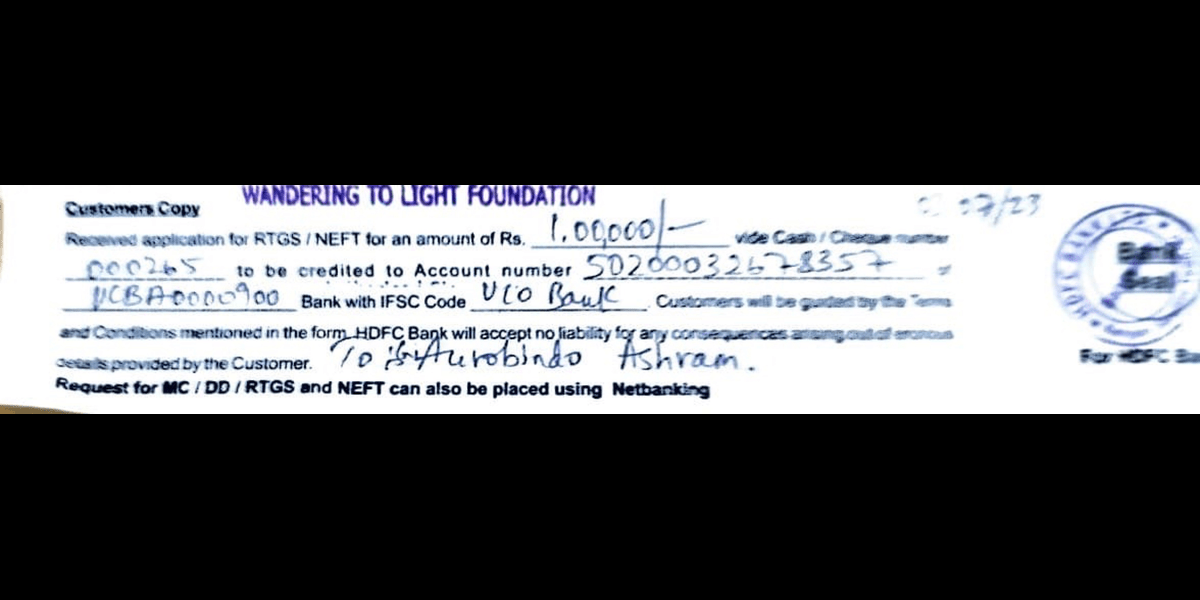 WANDERING TO LIGHT FOUNDATION
Customers Copy
07/23
Received application for RTGS / NEFT for an amount of Rs. 1,00,000/- vide Cash / Cheque number
000265 to be credited to Account number 50200032678357 of
UCBA0000900 Bank with IFSC Code UCO Bank Customers will be guided by the Terms
and Conditions mentioned in the form HDFC Bank will accept no liability for any consequences arising out of erronous
details provided by the Customer. To Aurobindo Ashram.
Request for MC / DD / RTGS and NEFT can also be placed using Netbanking
HDFC BANK
Bank
Seal
For HDFC